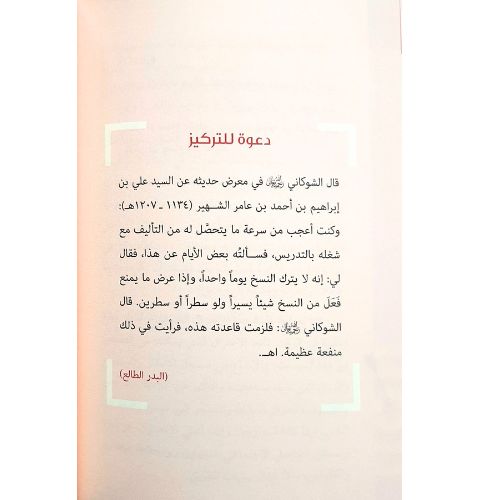 دعوة للتركيز
قال الشوكاني رحمه الله في معرض حديثه عن السيد علي بن
إبراهيم بن أحمد بن عامر الشهير (١١٣٤ ـ ١٢٠٧هـ):
وكنت أعجب من سرعة ما يتحصَّل له من التأليف مع
شغله بالتدريس، فســألتُه بعض الأيام عن هذا، فقال
لي: إنه لا يترك النسخ يوماً واحداً، وإذا عرض ما يمنع
فَعَلَ من النسخ شيئاً يسيراً ولو سطراً أو سطرين. قال
الشوكاني رحمه الله: فلزمت قاعدته هذه، فرأيت في ذلك
منفعة عظيمة. اهــ.
(البدر الطالع)